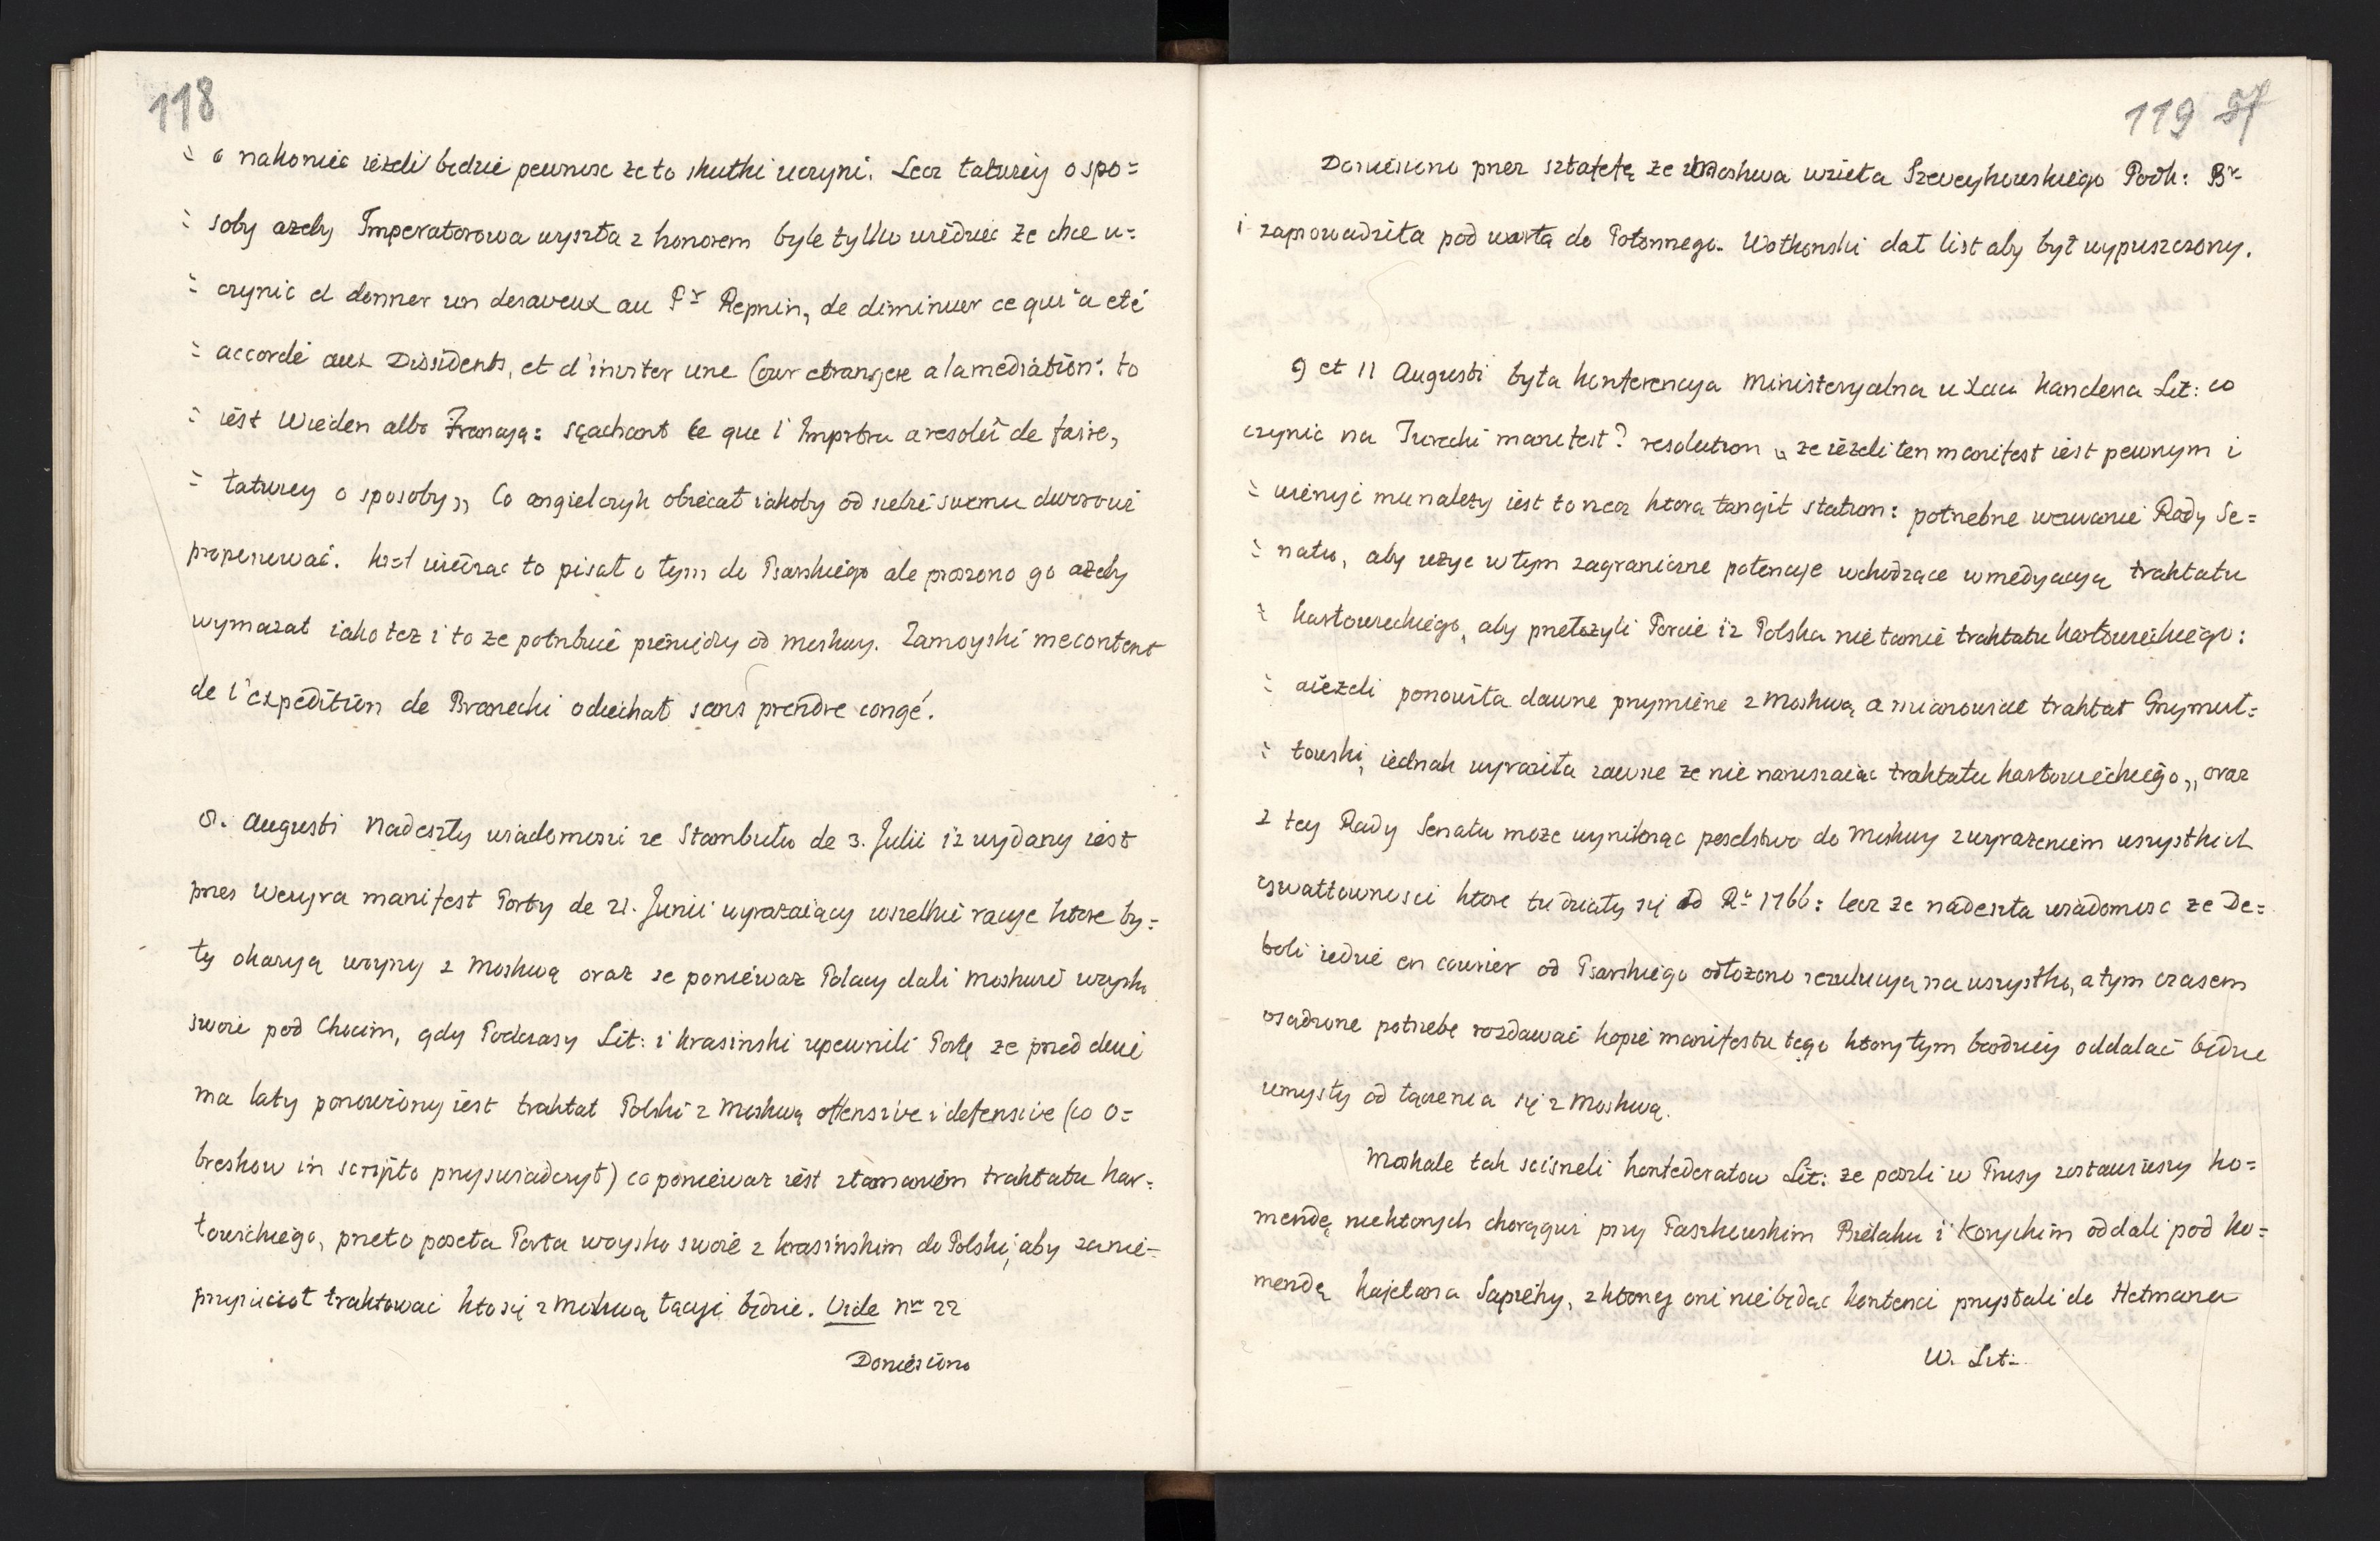 118
a nakoniec ieżeli będzie pewnosc ze to skutki uczyni. Lecz łatwiey o spo=
soby azeby Imperatorowa wyszła z honorem byle tylko wiedziec ze chce u=
czynic et donner un desaveux au Pr Repnin, de diminuer ce qui a eté
accordé aux Dissidents, et d'inviter une Cour etrangere a la mediation: to
iest Wieden albo Francyą: sçachant ce que l'Imprtru a resolu de faire,
łatwiey o sposoby„ Co angielczyk obiecał iakoby od siebie swemu dworowi
proponować. Krol widząc to pisał o tym do Psarskiego ale proszono go azeby
wymazał iako tez i to ze potrzebuie pieniędzy od Moskwy. Zamoyski mecontent
de l'expedition de Branecki odiechał sans prendre congé.
8. Augusti Nadeszły wiadomosci ze Stambułu de 3. Julii iz wydany iest
przes Wezyra manifest Porty de 21. Junii wyrazaiący wszelkie racye ktore by=
ły okazyą woyny z Moskwą oraz ze poniewaz Polacy dali Moskwie woysko
swoie pod Chocim, gdy Podczasy Lit: i Krasinski upewnili Portę ze przed dwie
ma laty ponowiony iest traktat Polski z Moskwą offensive i defensive (co O=
breskow in scripto przyswiadczył) co poniewaz iest złamaniem traktatu Kar=
łowickiego, przeto poseła Porta woysko swoie z Krasinskim do Polski, aby zanie=
przyiacioł traktowac kto się z Moskwą łączyć będzie. Vide nro 22
Doniesiono
119 57
Doniesiono przez sztafetę ze Moskwa wzieła Szeweykowskiego Podk: Br
i zaprowadziła pod wartą do Połonnego. Wołkonski dał list aby był wypuszczony.
9 et 11 Augusti była konferencya ministeryalna u Xcia Kanclerza Lit: co
czynic na Turecki manifest? resolution „ ze iezeli ten manifest iest pewnym i
wierzyc mu nalezy iest to rzecz ktora tangit statum: potrzebne wezwanie Rady Se=
natu, aby uzyc w tym zagraniczne potencye wchodzące w medyacyą traktatu
Karłowickiego, aby przełozyli Porcie iz Polska nie łamie traktatu Karłowickiego:
a iezeli ponowiła dawne przymierze z Moskwą a mianowicie traktat Grzymuł=
towski, iednak wyraziła zawsze ze nie naruszaiąc traktatu Karłowickiego„ oraz
z tey Rady Senatu moze wyniknąc poselstwo do Moskwy z wyrazeniem wszystkich
gwałtownosci ktore tu działy się od Ru 1766: lecz ze nadeszła wiadomosc ze De=
boli iedzie en courier od Psarskiego odłozono rezolucyą na wszystko, a tym czasem
osądzone potrzebe rozdawać kopie manifestu tego ktory tym bardziey oddalać będzie
umysły od łączenia się z Moskwą.
Moskale tak scisneli konfederatow Lit: ze poszli w Prusy zostawiwszy ko=
mendę niektorych chorągwi przy Paszkowskim Bielaku i Koryckim oddali pod ko=
mendę Kajetana Sapiehy, z ktorey oni nie będąc kontenci przystali do Hetmana
W. Lit: